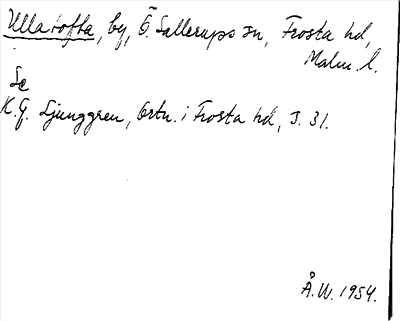 Ullatofta, by, Ö. Sallerups sn, Frosta hd,
Malm. l.
Se
K.G. Ljunggren, Ortn. i Frosta hd, s. 31.
Å.W. 1954.